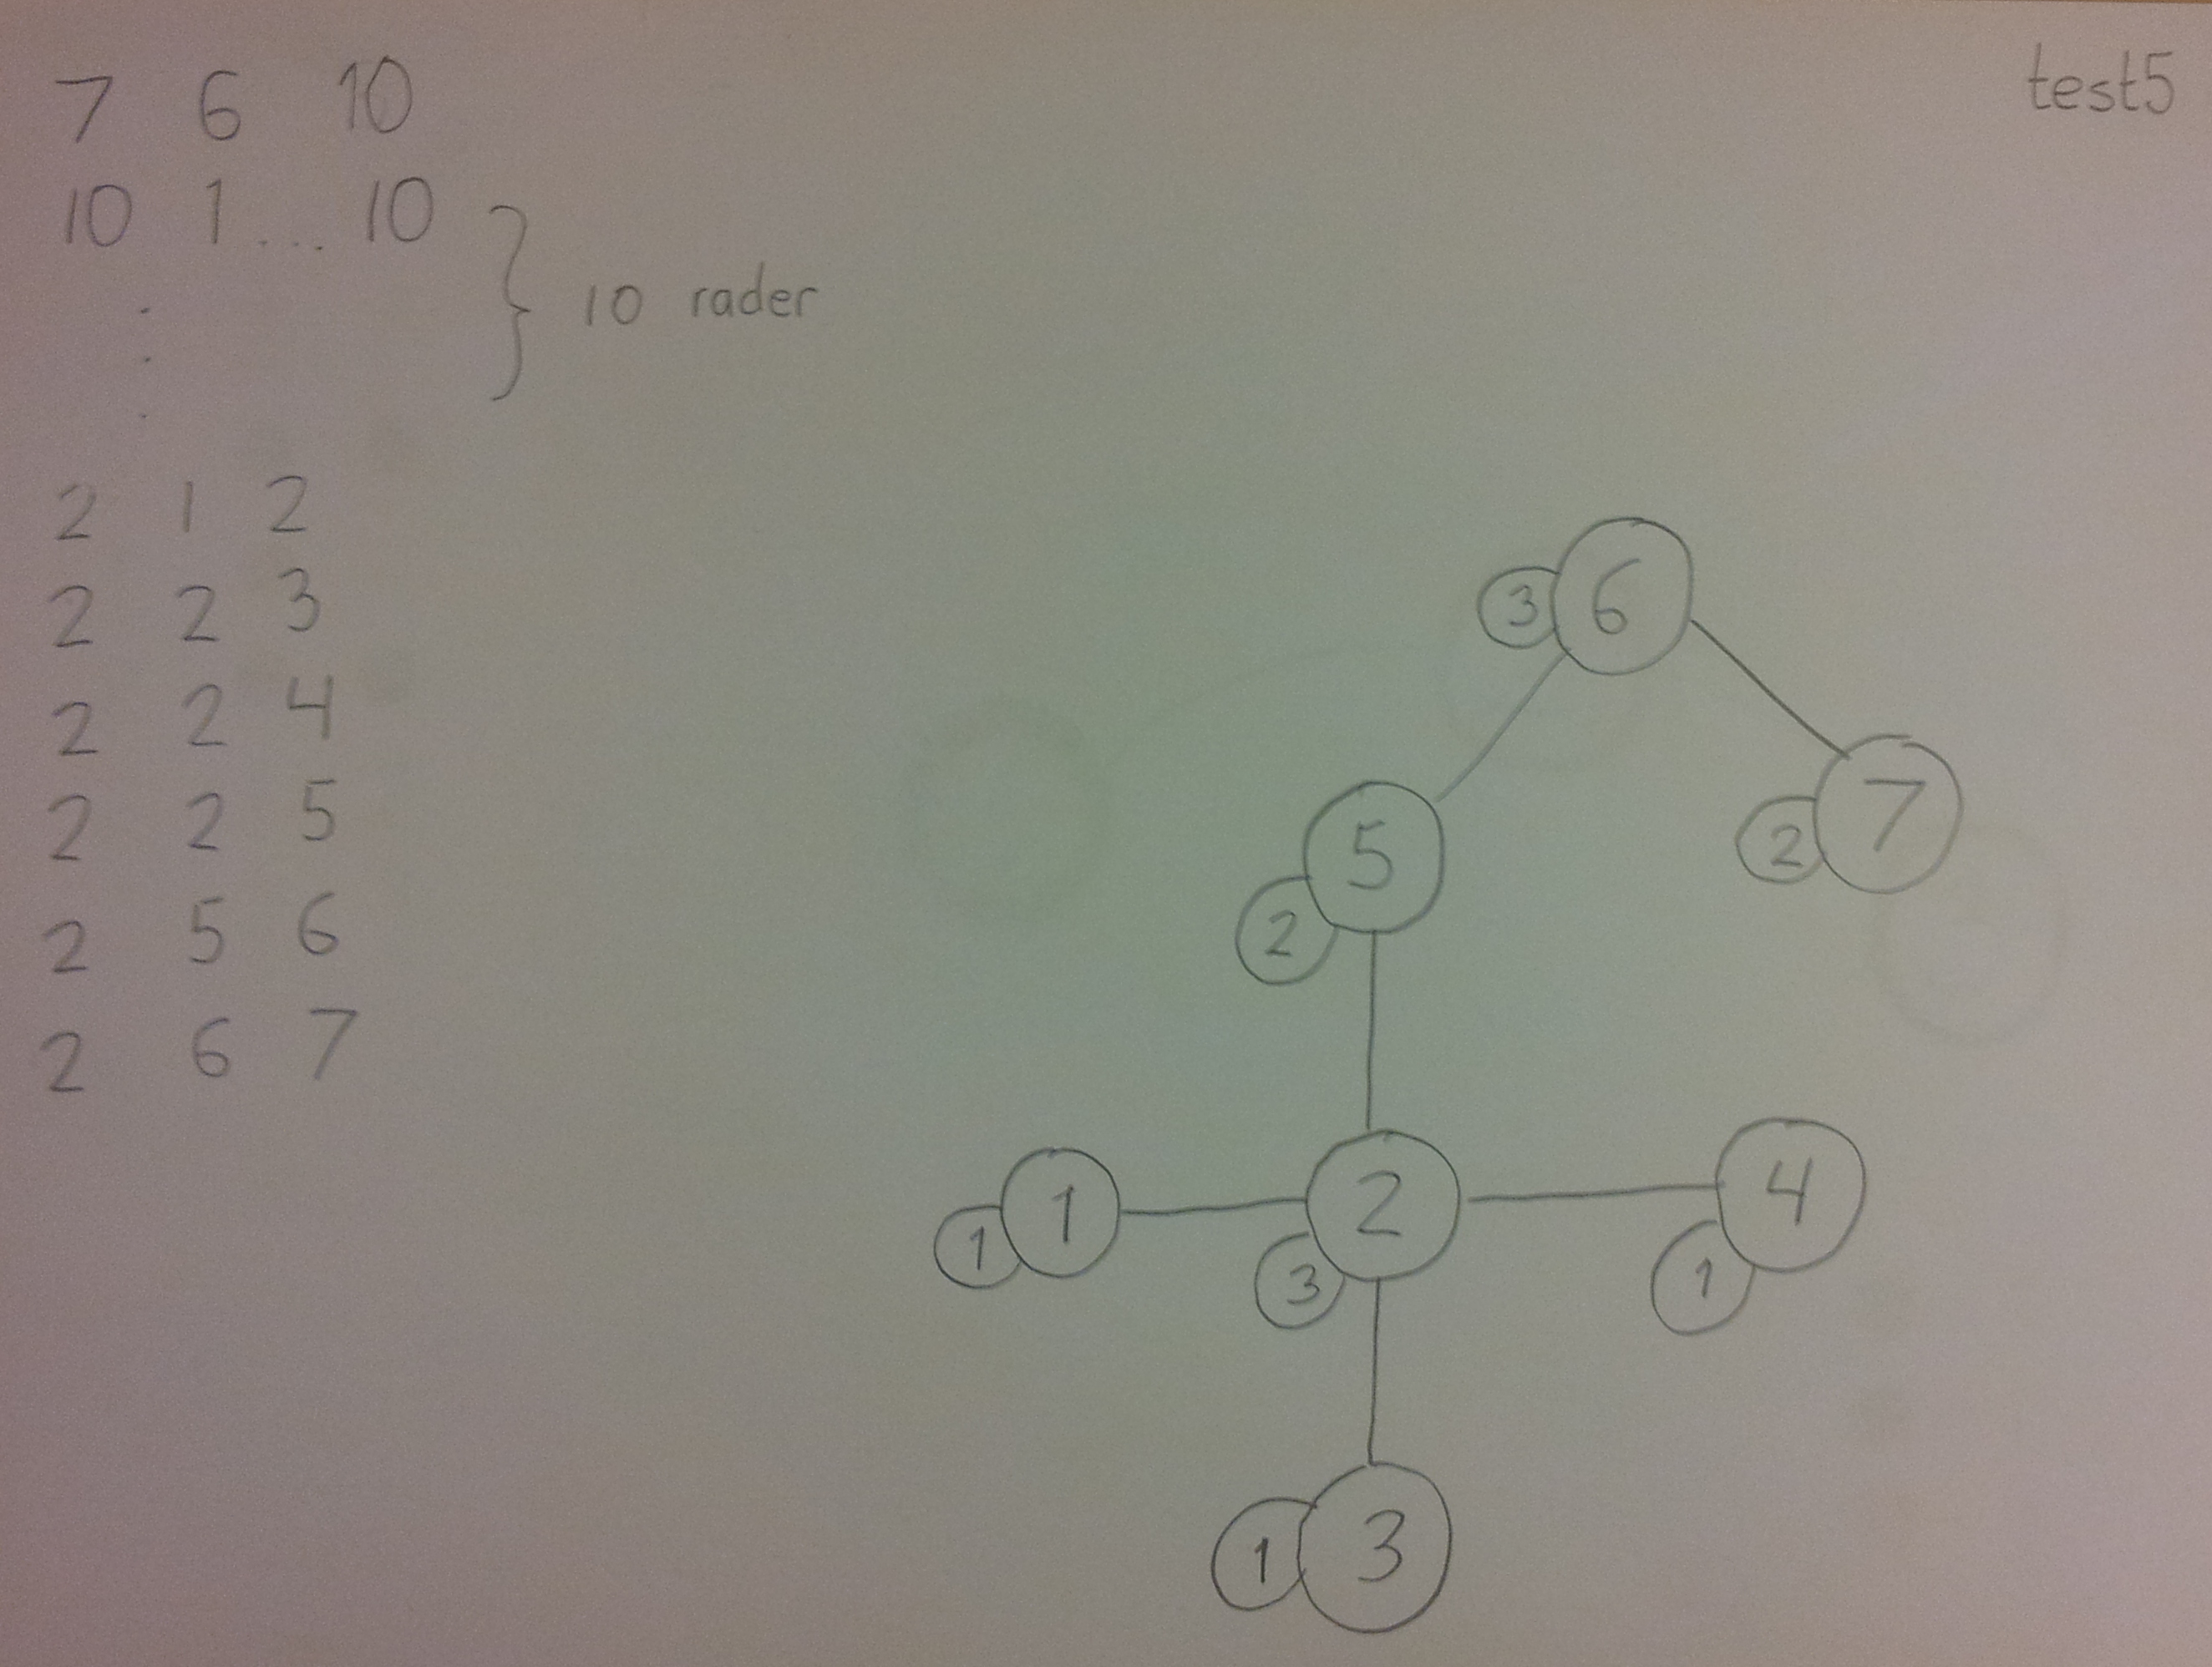 test5
7 6 10
10 1 ... 10
10 rader
2 1 2
2 2 3
2 2 4
2 2 5
2 5 6
2 6 7
3 6
2 7
5
2
1 1
2
3
4
1
1 3